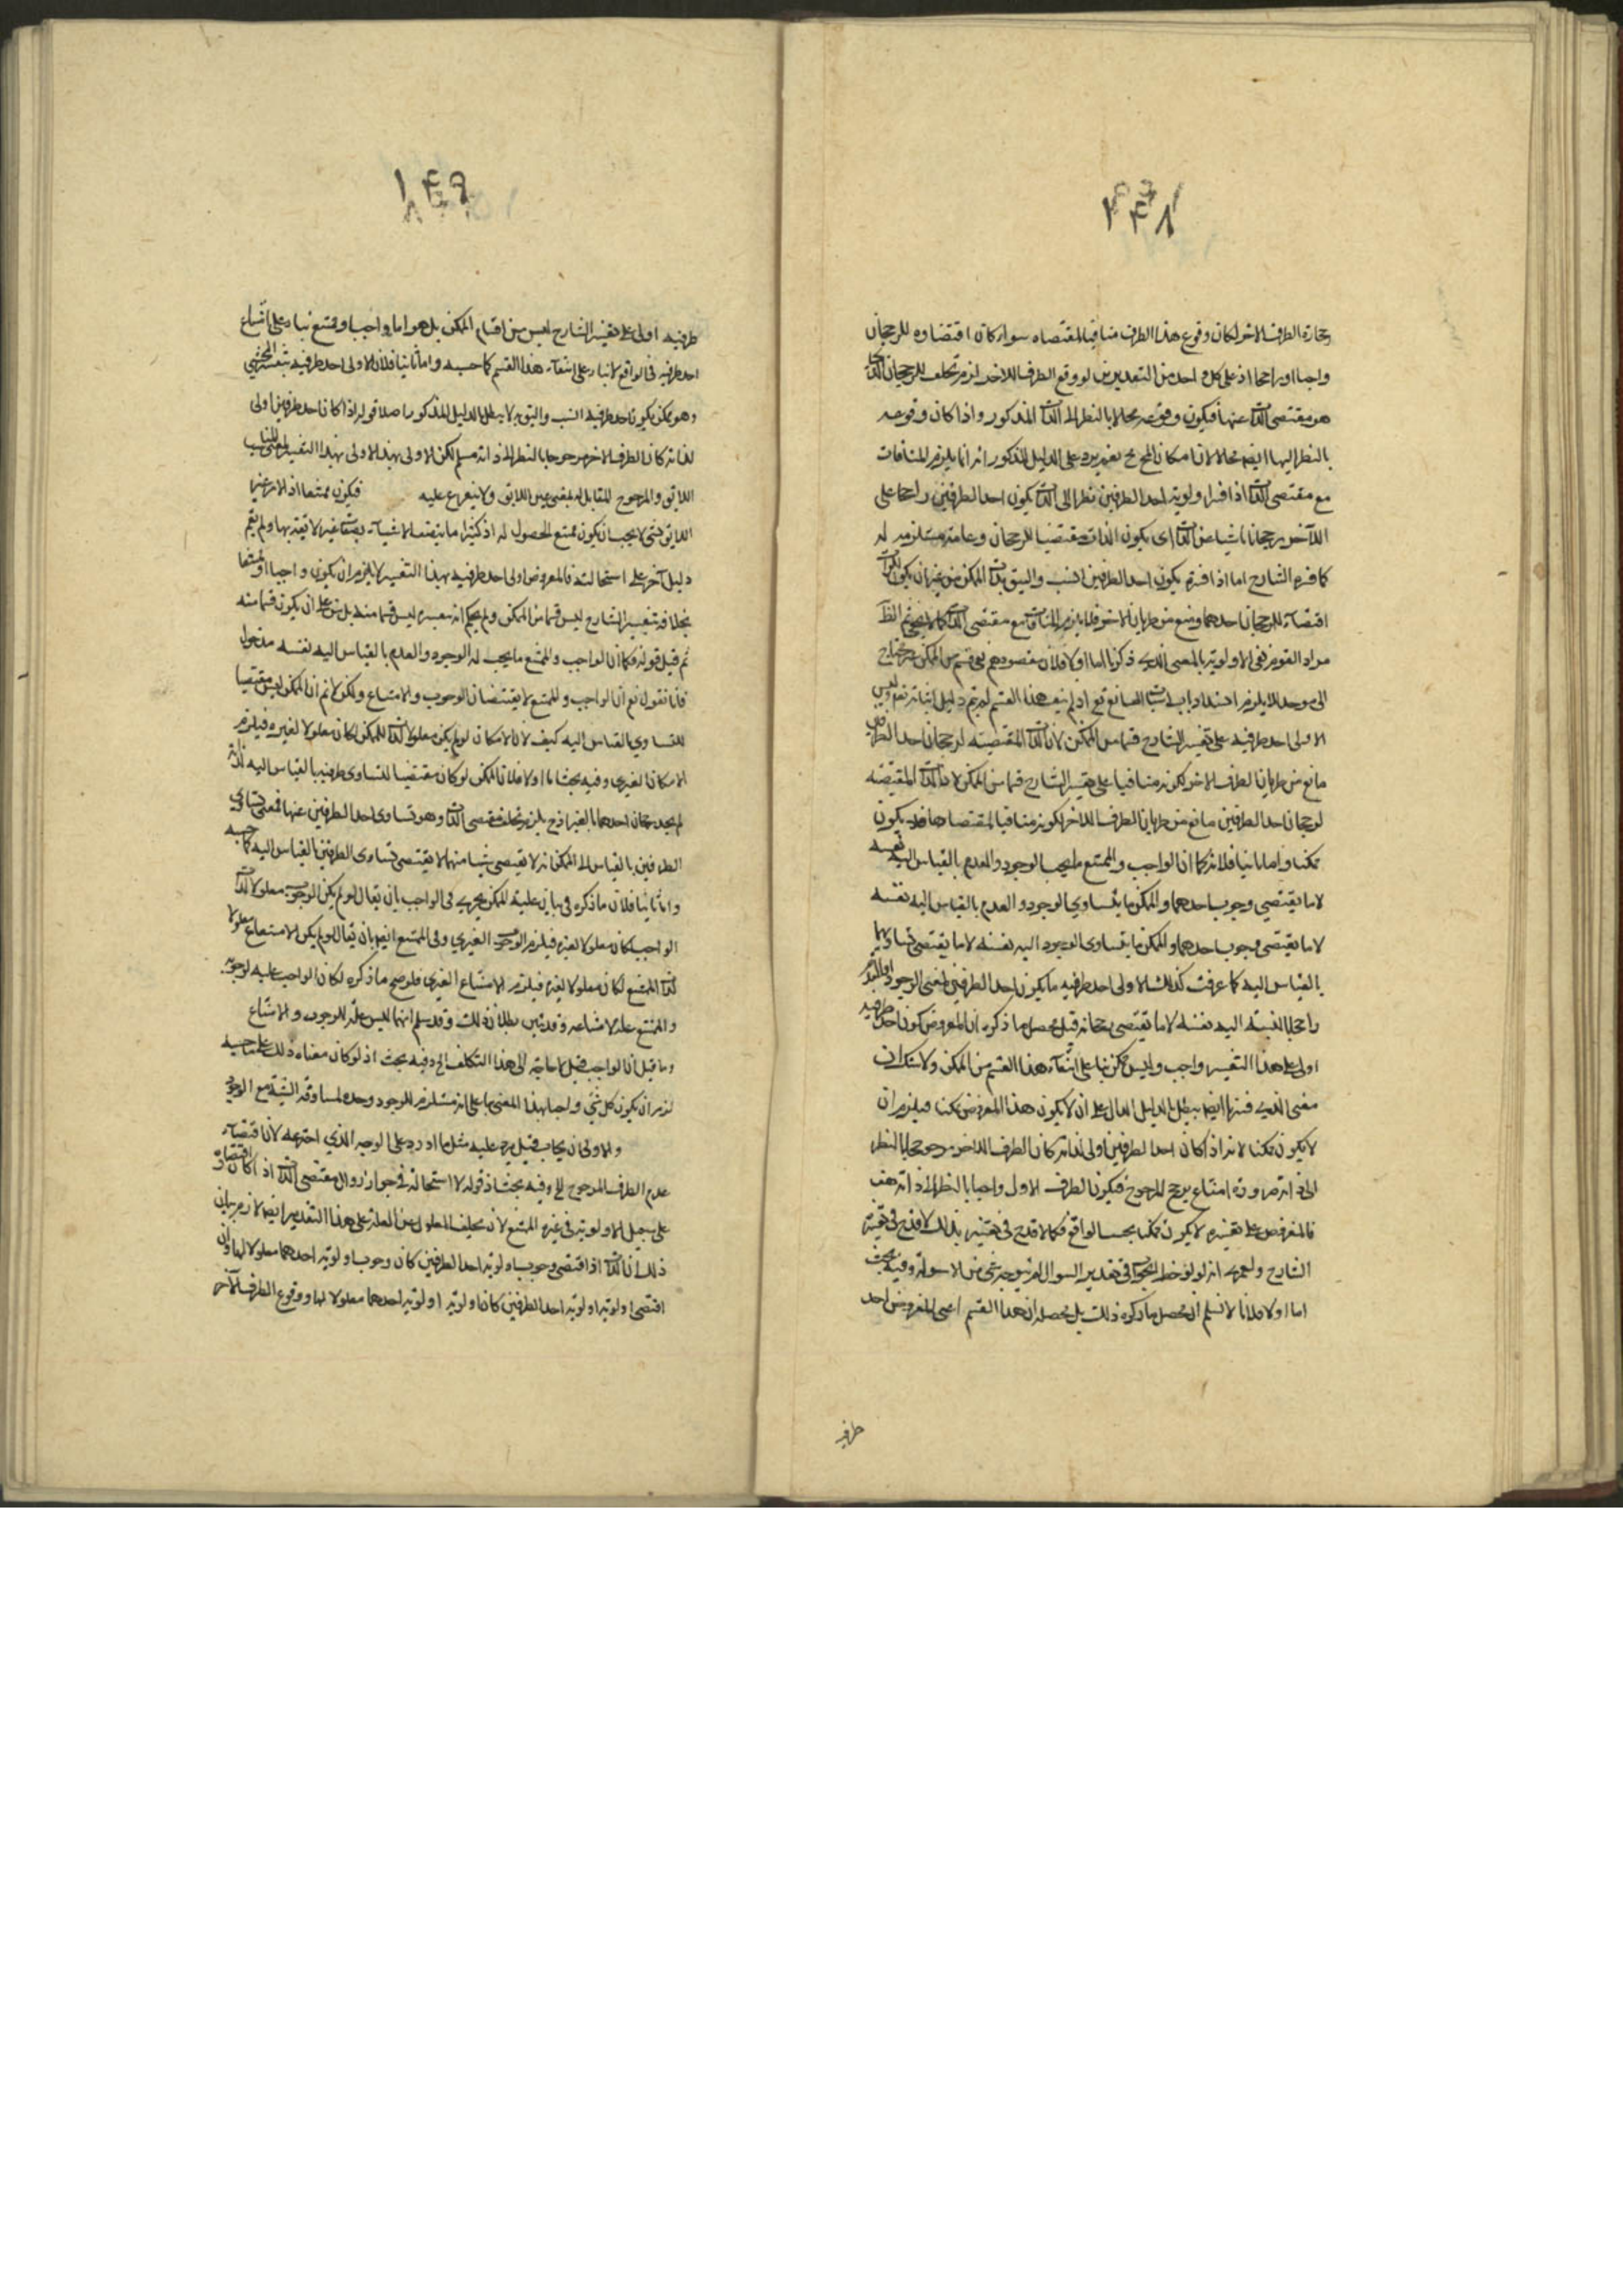 ۱۴۸
رجحان الطرف الاخر لكان وقوع هذا الطرف منافيا لمقتضاه سواء كان اقتضاوه للرجحان
واجبا او راجحا اذ على كل واحد من التقديرين لو وقع الطرف الاخر لزم تخلف الرجحان
هو مقتضى الذات عنها فيكون وقوعه محالا بالنظر الى الذات المذكور واذا كان وقوعه
بالنظر اليها ايضا محالا لان امكان يرد على الدليل المذكور انه انما يلزم المنافات
مع مقتضى الذات اذا فسر اولوية احد الطرفين نظرا الى الذات بكون احد الطرفين راجحا على
الآخر رجحانا ناشيا عن الذات اى يكون الذات مقتضيا للرجحان وعامة مستلزمه له
كما فسره الشارح اما اذا فسره بكون احد الطرفين انسب واليق بذات الممكن من غير ان يكون
اقتضاء للرجحان احدهما ومنع من طريان الاخر فلا يلزم المنافاة مع مقتضى الذات
مراد القوم نفى الاولوية بالمعنى الذى ذكرنا اما اولا فلان مقصودهم نفى قسم من الممكن
الى موجد لئلا يلزم انسداد باب اثبات الصانع تع اذ لم ينف هذا القسم لم يتم دليل اثباته تع وليس
الاولى احد طرفيه على تفسير الشارح قسما من الممكن لان الذات المقتضية لرجحان احد الطرفين
مانع من طريان الطرف الاخر لكونه منافيا على تفسير الشارح قسما من الممكن لان الذات المقتضية
لرجحان احد الطرفين مانع من طريان الطرف الاخر لكونه منافيا لمقتضاها فلا يكون
ممكنا واما ثانيا فلانه كما ان الواجب والممتنع ما يجب الوجود والعدم بالقياس اليه نفسه
لا ما يقتضى وجوب احدهما والممكن ما يتساوى الوجود والعدم بالقياس اليه نفسه
لا ما يقتضى وجوب احدهما والممكن ما يتساوى اليه نفسه لا ما يقتضى تساويهما
بالقياس اليه كما عرفت كذلك الاولى احد طرفيه ما يكون احد الطرفين اعنى الوجود او العدم
راجحا بالنسبة اليه نفسه لا ما يقتضى رجحانه قيل محصل ما ذكره ان المفروض كون احد طرفيه
اولى على هذا التفسير واجب وليس بممكن بناء على انتفاء هذا القسم من الممكن ولا شك ان
معنى الذى فسرنا ايضا يبطل بالدليل الدال على ان لا يكون هذا المفروض ممكنا فيلزم ان
لا يكون ممكنا لانه اذا كان احد الطرفين اولى لذاته كان الطرف الاخر مرجوحا بالنظر
الى ذاته ضرورة امتناع ترجح المرجوح فيكون الطرف الاول واجبا بالنظر الى ذاته هف
فالمفروض على تفسيره لا يكون ممكنا بحسب الواقع فكما لا قدح فى تفسيره بذلك لا قدح فى تفسير
الشارح ولعمرى انه لو لوحظ فى تقدير السوال لم يتوجه شى من الاسولة وفيه بحث
اما اولا فلانا لا نسلم ان محصل ما ذكره ذلك بل محصله ان هذا القسم اعنى المفروض احد
طرفيه
۱۴۹
طرفيه اولى على تفسير الشارح ليس من اقسام الممكن بل هو اما واجب او ممتنع بناء على امتناع
احد طرفيه فى الواقع لا بناء على انتفاء هذا القسم كما حسبه واما ثانيا فلان الاولى احد طرفيه بتفسير المحشى
وهو ممكن يكون احد طرفيه انسب واليق به لا يبطل بالدليل المذكور اصلا قوله اذا كان احد طرفين اولى
لذاته كان الطرف الاخر مرجوحا بالنظر الى ذاته مسلم لكن الاولى بهذا الاولى بهذا التفسير بمعنى
اللايق والمرجوح المقابل له بمعنى غير اللايق ولا يتفرع عليه فيكون ممتنعا اذ الامر غير
اللايق بشى لا يجب ان يكون ممتنع الحصول له اذ كثيرا ما يتصف الاشياء بصفات غير لايقة بها ولم يقم
دليل آخر على استحالته فالمفروض اولى احد طرفيه بهذا التفسير لا يلزم ان يكون واجبا او ممتنعا
بخلاف تفسير الشارح ليس قسما من الممكن ولم يحكم انه بتفسيره ليس قسما منه بل نص على ان يكون قسما منه
ثم قيل قوله فكما ان الواجب والممتنع ما يجب له الوجود والعدم بالقياس اليه نفسه مدخول
فانا نقول نع ان الواجب والممتنع لا يقتضيان الوجوب والامتناع ولكن لا نم ان الممكن ليس مقتضيا
للتساوى بالقياس اليه كيف لا ن الامكان لو لم يكن معلولا لذات الممكن لكان معلولا لغيره فيلزم
الامكان الغيرى وفيه بحث اما اولا فلان الممكن لو كان مقتضيا لتساوى طرفيه بالقياس اليه لذاته
لم يجد رجحان احدهما بالغير اذ ح يلزم تخلف مقتضى الذات وهو تساوى احد الطرفين عنها فمعنى تساوى
الطرفين بالقياس الى الممكن انه لا يقتضى شيا منهما لا يقتضى تساوى الطرفين بالقياس اليه كما حسبه
واما ثانيا فلان ما ذكره فى بيان علية الممكن يجرى فى الواجب بان يقال لو لم يكن الوجوب معلولا لذات
الواجب لكان معلولا لغيره فيلزم الوجوب الغيرى وفى الممتنع ايضا بان يقال لو لم يكن الامتناع معلولا
لذات الممتنع لكان معلولا لغيره فيلزم الامتناع الغيرى فلو صح ما ذكره لكان الواجب علة لوجوبه
والممتنع علة لامتناعه وقد تبين بطلان ذلك وقد سلم انهما ليس علة للوجوب والامتناع
وما قيل ان الواجب قيل لا حاجة الى هذا التكلف الخ وفيه بحث اذ لو كان معناه ذلك على ما حسبه
لزم ان يكون كل شى واجبا بهذا المعنى بناء على انه مستلزم للوجود وحده لمساوقة الشيئية مع الوجود
والاولى ان يجاب قيل يرد عليه مثل ما اورد على الوجه الذى اخترعه لان اقتضاء
عدم الطرف المرجوح الخ وفيه بحث اذ قوله لا استحالة فى جواز زوال مقتضى الذات اذا كان اقتضاؤه
على سبيل الاولوية فى غيره الممتنع لان تخلف المعلول عن العلة على هذا التقدير ايضا لازم بيان
ذلك ان الذات اذا اقتضى وجوب اولوية احد الطرفين كان وجوب اولوية احدهما معلولا لها وان
اقتضى اولوية اولوية احد الطرفين كان اولوية اولوية احدهما معلولا لها ووقوع الطرف الآخر